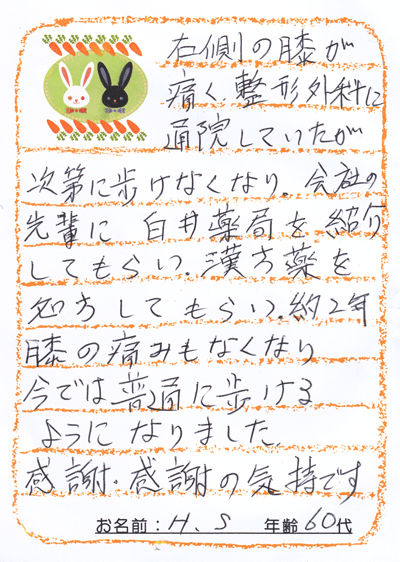 右側の膝が
痛く、整形外科に
通院していたが
次第に歩けなくなり、会社の
先輩に 臼井薬局を 紹介
してもらい、漢方薬を
処方してもらい、約2年
膝の痛みもなくなり
今では普通に歩ける
ようになりました。
感謝・感謝の気持です
お名前：H.S 年齢60代